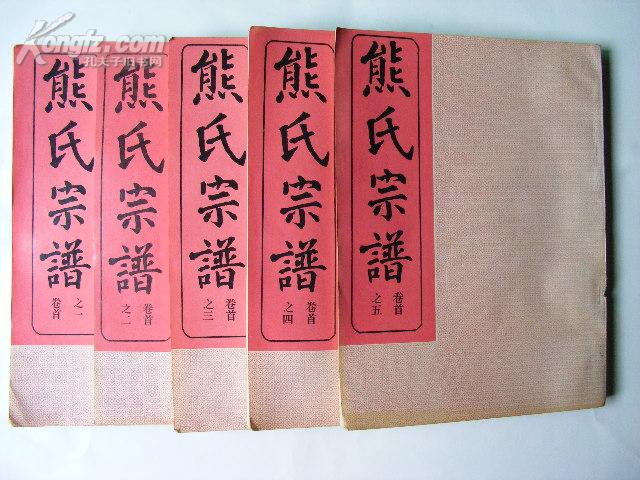 Kongfz.com
孔夫子旧书网
熊氏宗譜
之一
卷首
熊氏宗譜
卷首
之二
熊氏宗譜
卷首
之三
熊氏宗譜
卷首
之四
熊氏宗譜
卷首
之五